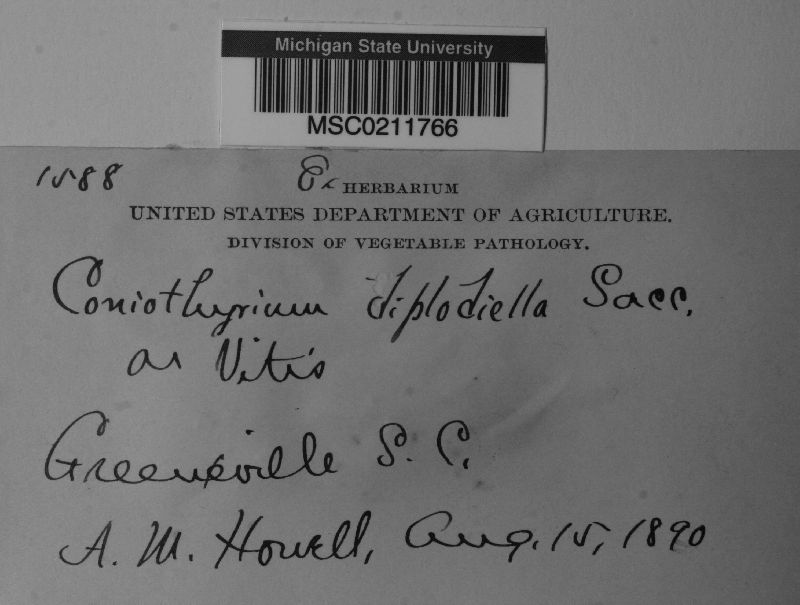 Michigan State University
MSC0211766
1588 Ex HERBARIUM
UNITED STATES DEPARTMENT OF AGRICULTURE.
DIVISION OF VEGETABLE PATHOLOGY.
Coniothyrium diplodiella Sacc.
on Vitis
Greensville S. C.
A. M. Howell, Aug. 15, 1890